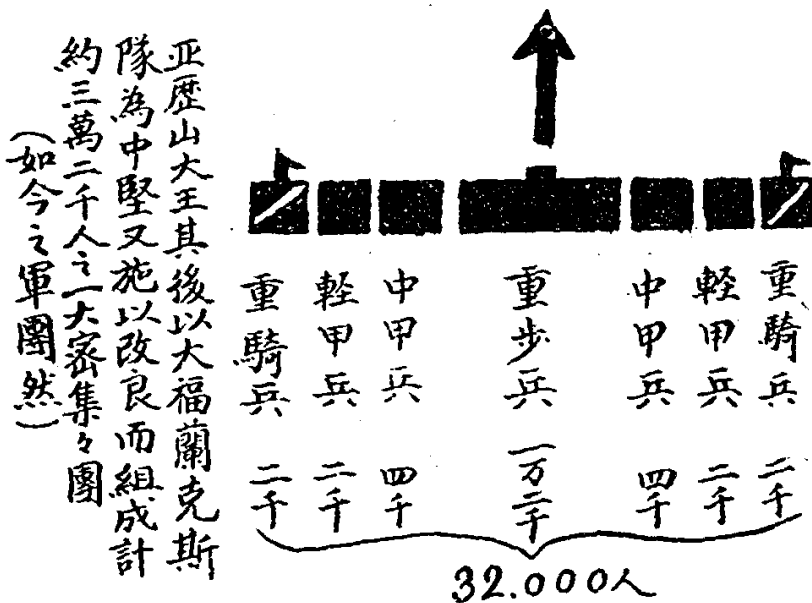 重騎兵 二千
軽甲兵 二千
中甲兵 四千
重步兵 一万二千
中甲兵 四千
軽甲兵 二千
重騎兵 二千
32.000人
亚歷山大王其後以大福蘭克斯
隊為中堅又施以改良而組成計
約三萬二千人之一大密集々團
(如今之軍團然)